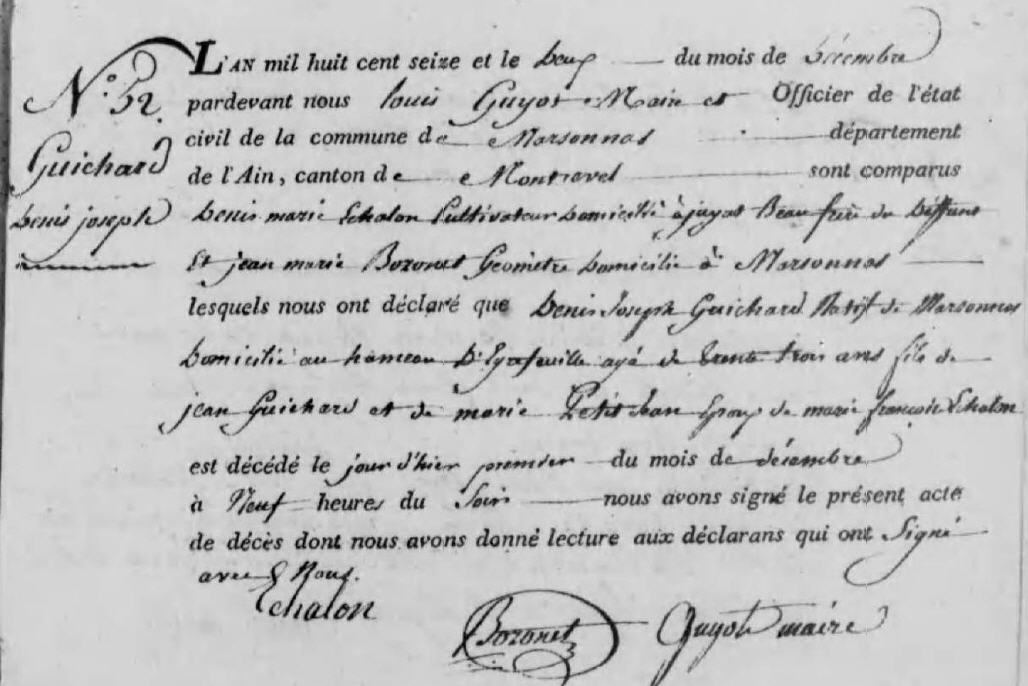 N.° 52.
Guichard
Denis joseph
L'AN mil huit cent seize et le Deux du mois de Décembre
pardevant nous Louis Guyot Maire et Officier de l'état
civil de la commune de Marsonnas département
de l'Ain, canton de Montravel sont comparus
Denis marie Echalon Cultivateur Domicilié à jayat Beau frère du Deffunt
Et jean marie Bozonet Géomètre Domicilié à Marsonnas
lesquels nous ont déclaré que Denis Joseph Guichard Natif de Marsonnas
Domicilié au hameau D' agé de Trente trois ans fils de
jean Guichard et de marie Petit Jean Epoux de marie françoise Echalon
est décédé le jour d'hier premier du mois de décembre
à Neuf heures du Soir nous avons signé le présent acte
de décès dont nous avons donné lecture aux déclarans qui ont Signé
avec Nous.
Echalon
Bozonet
Guyot maire